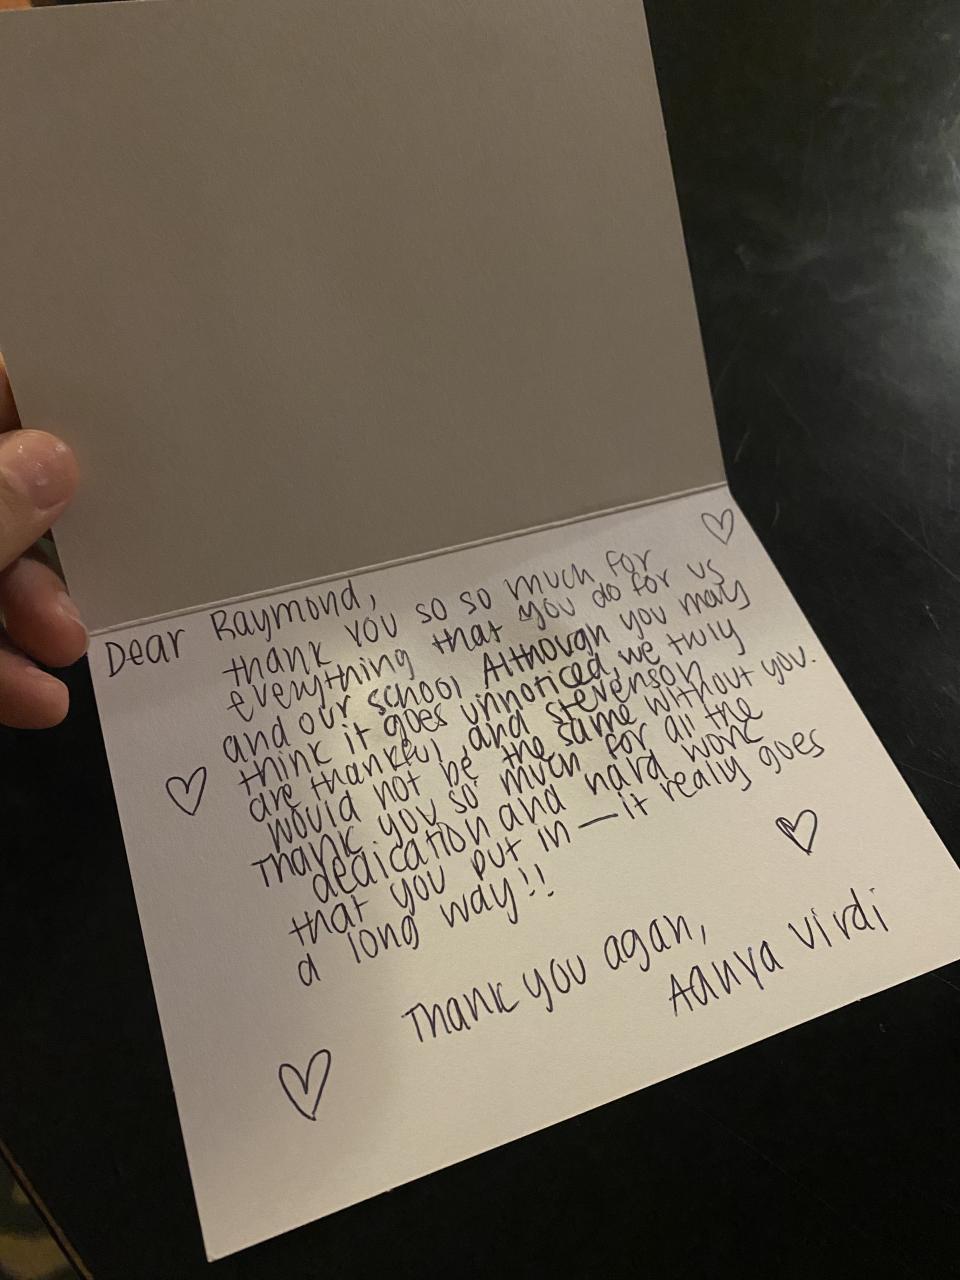 Dear Raymond,
thank you so so much for
everything that you do for us
and our school Although you may
think it goes unnoticed, we truly
are thankful, and stevenson
would not be the same without you.
Thank you so much for all the
dedication and hard work
that you put in — it really goes
a long way!!
Thank you agan,
Aanya Virdi